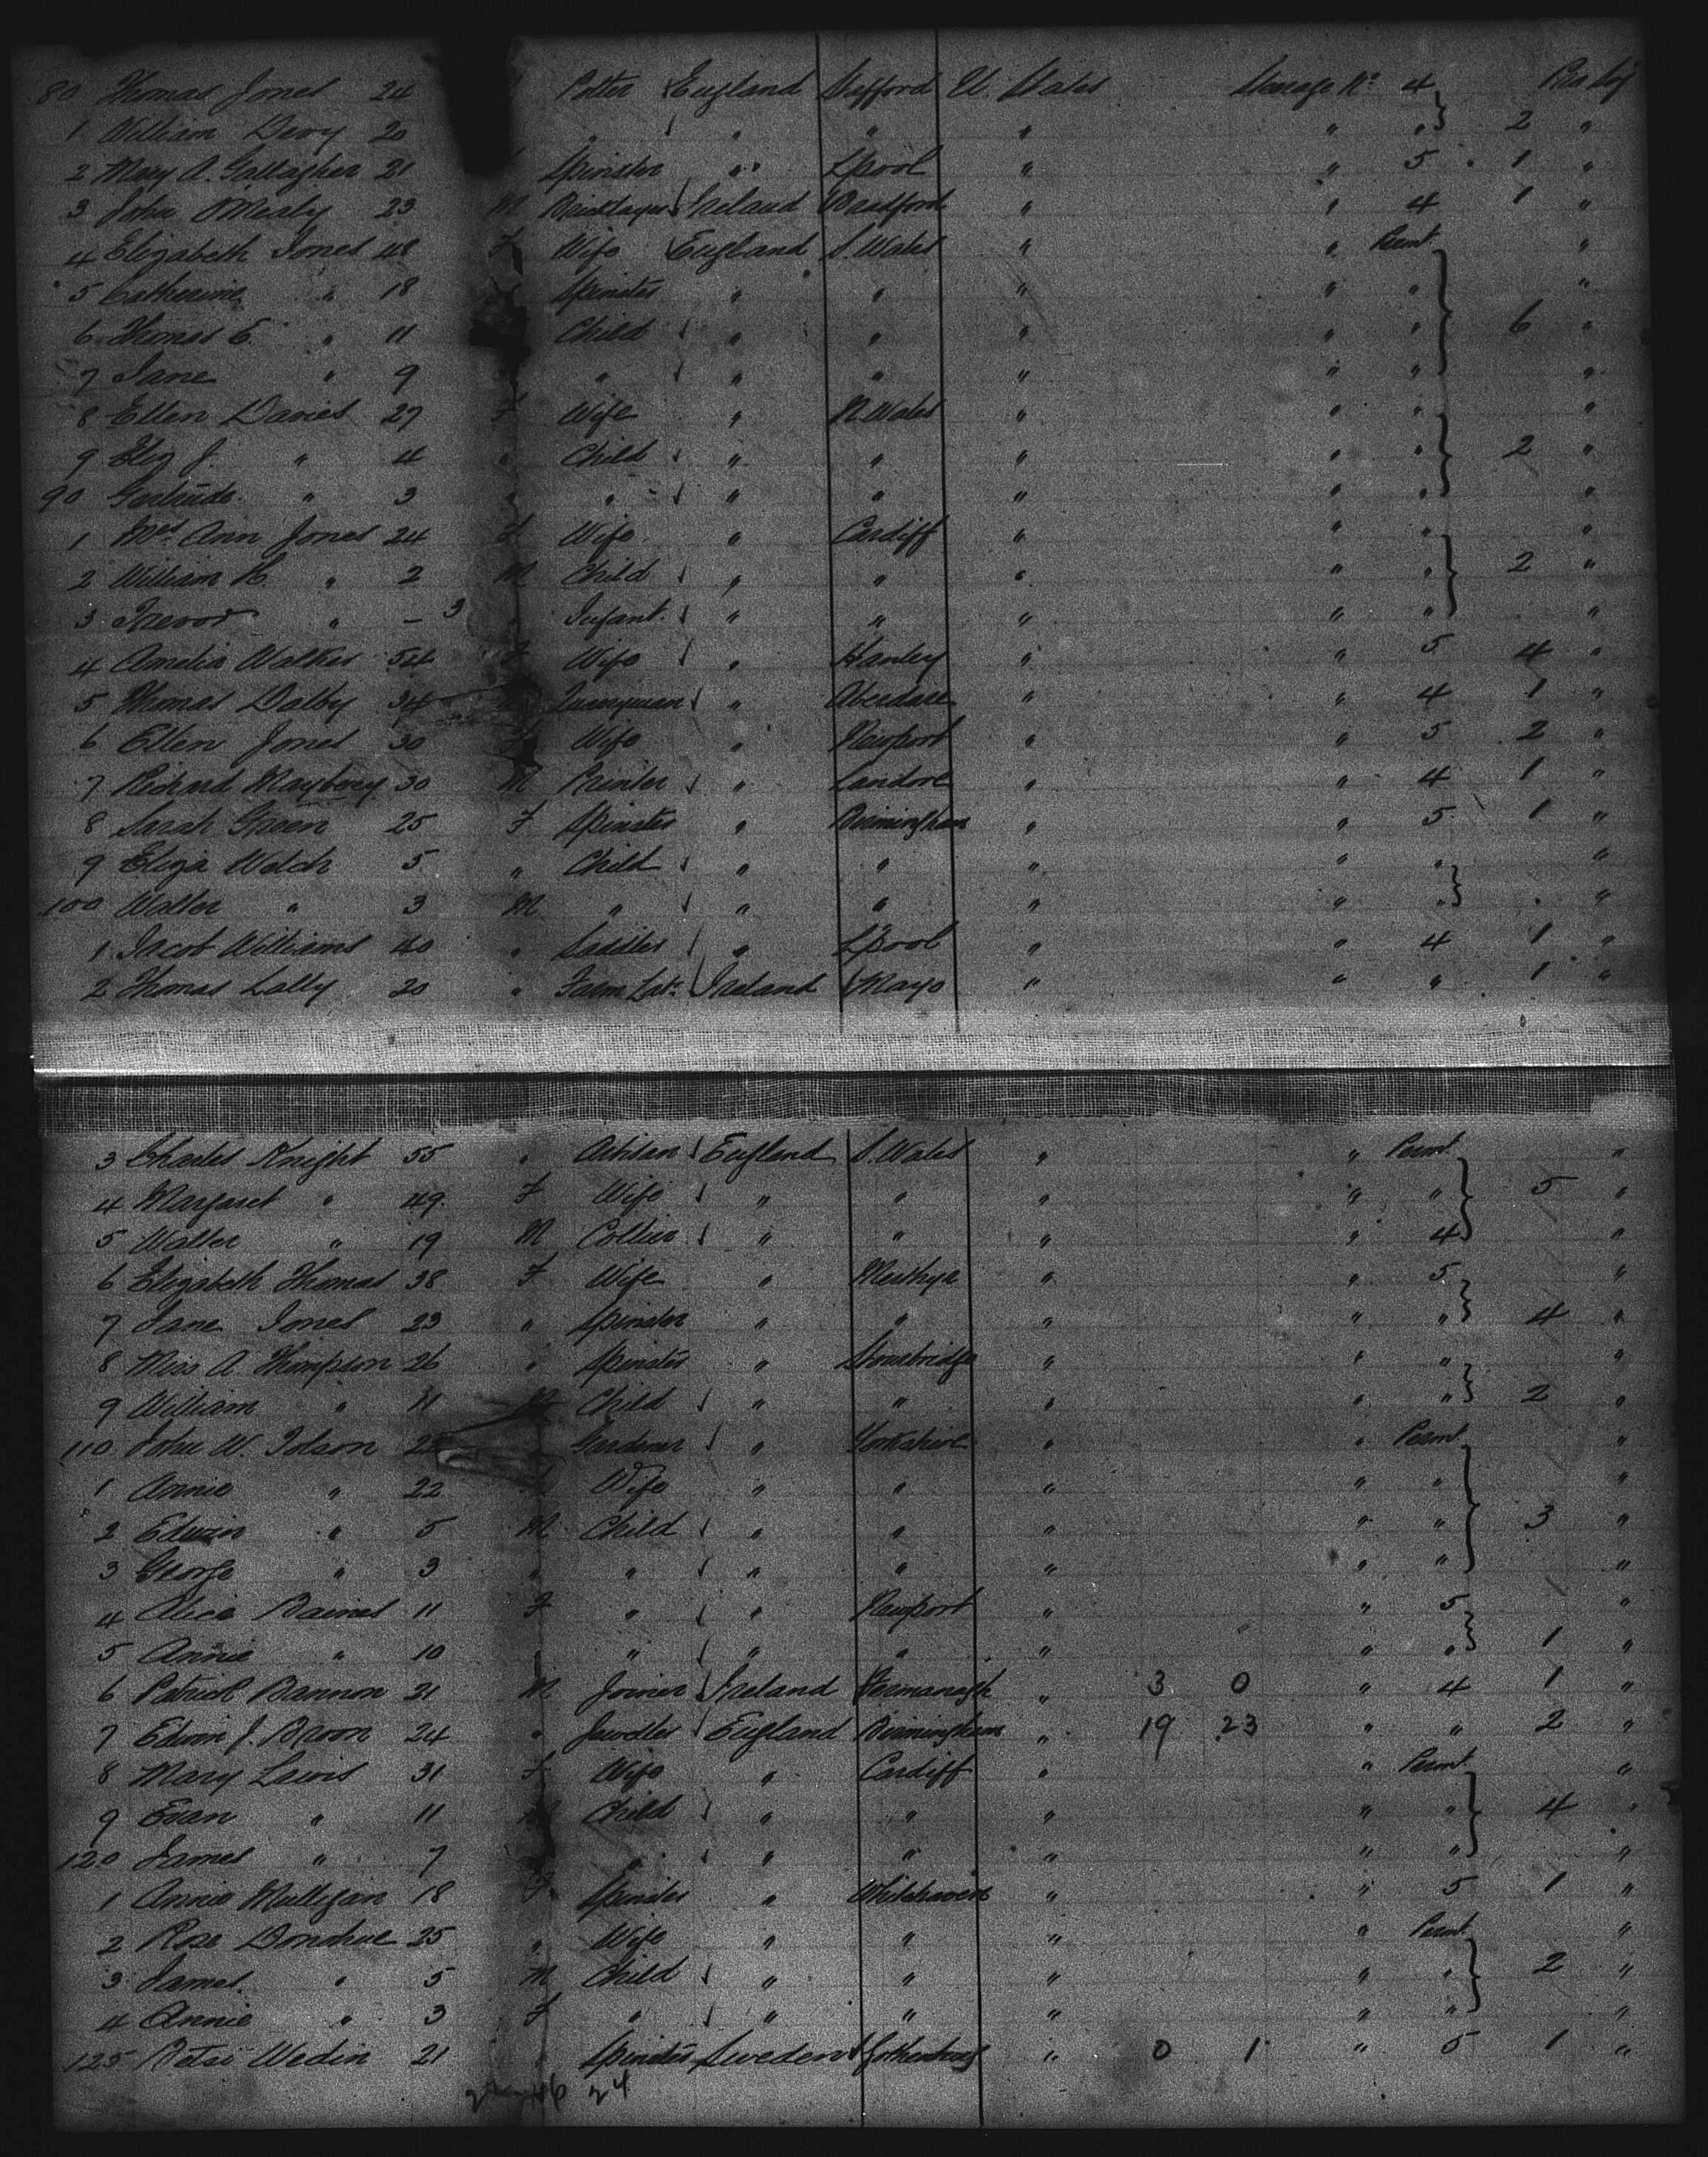 80 Thomas Jones 24 Potter England U. States Steerage No 4
1 William Devy 20 " " " " " " 2 "
2 Mary A. Gallagher 21 Spinster " L'pool " " 5 1 "
3 John O'Mealy 23 M Bricklayer Ireland Bradford " " 4 1 "
4 Elizabeth Jones 48 F Wife England S. Wales " " "
5 Catherine " 18 Spinster " " " " " "
6 Thomas E. " 11 Child " " " " " 6 "
7 Jane " 9 " " " " " " "
8 Ellen Davies 27 F Wife " N. Wales " " " "
9 Eliz J. " 4 " Child " " " " " 2 "
90 Gertrude " 3 " " " " " " " "
1 Mrs Ann Jones 24 F Wife " Cardiff " " " "
2 William H. " 2 M Child " " " " " 2 "
3 Trevor " - 3 " Infant " " " " " "
4 Amelia Walker 54 F Wife " Hanley " " 5 4 "
5 Thomas Dalby 34 Quarryman " Aberdare " " 4 1 "
6 Ellen Jones 30 F Wife " Newport " " 5 2 "
7 Richard Maybery 30 M Printer " Landore " " 4 1 "
8 Sarah Green 25 F Spinster " Birmingham " " 5 1 "
9 Eliza Welch 5 " Child " " " " " "
100 Walter " 3 M " " " " " " "
1 Jacob Williams 40 " Saddler " L'pool " " 4 1 "
2 Thomas Lally 20 " Farm Labr Ireland Mayo " " " 1 "
3 Charles Knight 55 " Artisan England S. Wales " " "
4 Margaret " 49 F Wife " " " " " 5 "
5 Walter " 19 M Collier " " " " 4 "
6 Elizabeth Thomas 38 F Wife " Merthyr " " 5 "
7 Jane Jones 23 " Spinster " " " " " 4 "
8 Miss A. Thompson 26 " Spinster " Stourbridge " " " "
9 William " 11 M Child " " " " " 2 "
110 John W. Tolson Gardener " Yorkshire " "
1 Annie " 22 Wife " " " " " "
2 Edwin " 5 M Child " " " " " 3 "
3 George " 3 " " " " " " " "
4 Alice Baines 11 F " " Newport " " 5 "
5 Annie " 10 " " " " " " " 1 "
6 Patrick Bannon 21 M Joiner Ireland Fermanagh " 3 0 " 4 1 "
7 Edwin J. Broon 24 " Jeweller England Birmingham " 19 23 " " 2 "
8 Mary Lewis 31 F Wife " Cardiff " " "
9 Evan " 11 M Child " " " " " 4 "
120 James " 7 " " " " " " "
1 Annie Mulligan 18 F Spinster " Whitehaven " " 5 1 "
2 Rose Donohue 25 " Wife " " " " "
3 James " 5 M Child " " " " " 2 "
4 Annie " 3 F " " " " " " "
125 Betsi Wedin 21 " Spinster Sweden Gothenburg " 0 1 " 5 1 "
24